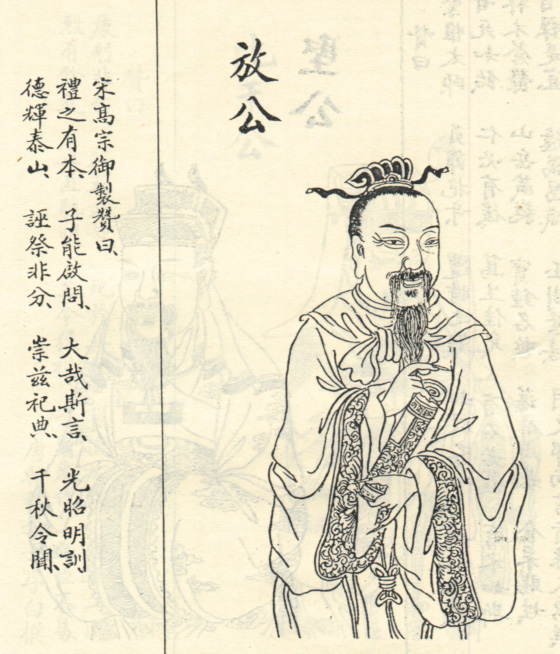 放公
宋高宗御製贊曰、
禮之有本、子能啟問、大哉斯言、光昭明訓
德輝泰山、誣祭非分、崇茲祀典、千秋令聞、